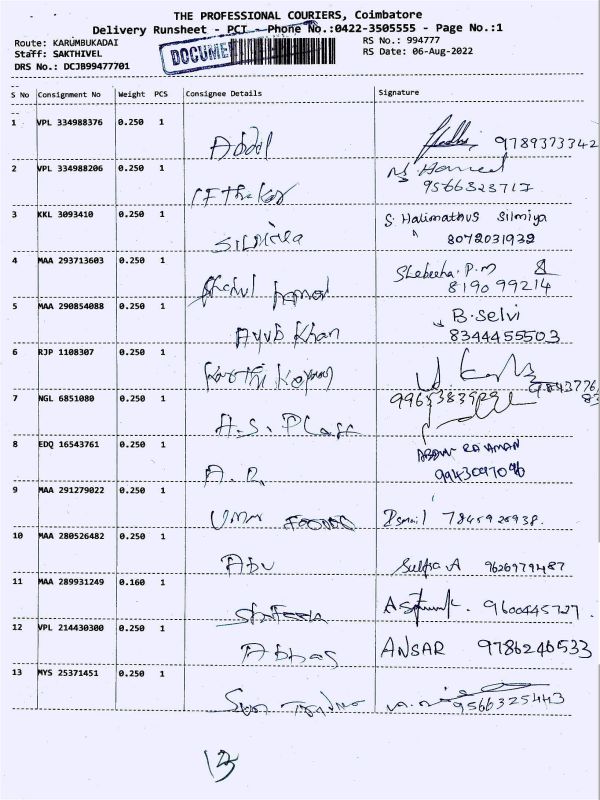 THE PROFESSIONAL COURIERS, Coimbatore
Delivery Runsheet - PCT - Phone No.:0422-3505555 - Page No.:1
Route: KARUMBUKADAI RS No.: 994777
Staff: SAKTHIVEL RS Date: 06-Aug-2022
DRS No.: DCJB99477701
DOCUME
S No Consignment No Weight PCS Consignee Details Signature
1 VPL 334988376 0.250 1 Abdul 9789373342
2 VPL 334988206 0.250 1 N. Hameed
9566323717
3 KKL 3093410 0.250 1 S. Halimathus Silmiya
8072031932
4 MAA 293713603 0.250 1 Shahul Hamed Shebeeha. P.M
8190 99214
5 MAA 290854088 0.250 1 Ayub Khan B. Selvi
8344455503
6 RJP 1108307 0.250 1
7 NGL 6851080 0.250 1 A.S. Plast
8 EDQ 16543761 0.250 1 A.R. ABDUL RAHMAN
9 MAA 291279022 0.250 1 Umar Farooq Ismail 7845926938.
10 MAA 280526482 0.250 1 Abu Sulfia A 9626979487
11 MAA 289931249 0.160 1 9600445727.
12 VPL 214430300 0.250 1 Abbas ANSAR 9786246533
13 MYS 25371451 0.250 1 9566325443
13